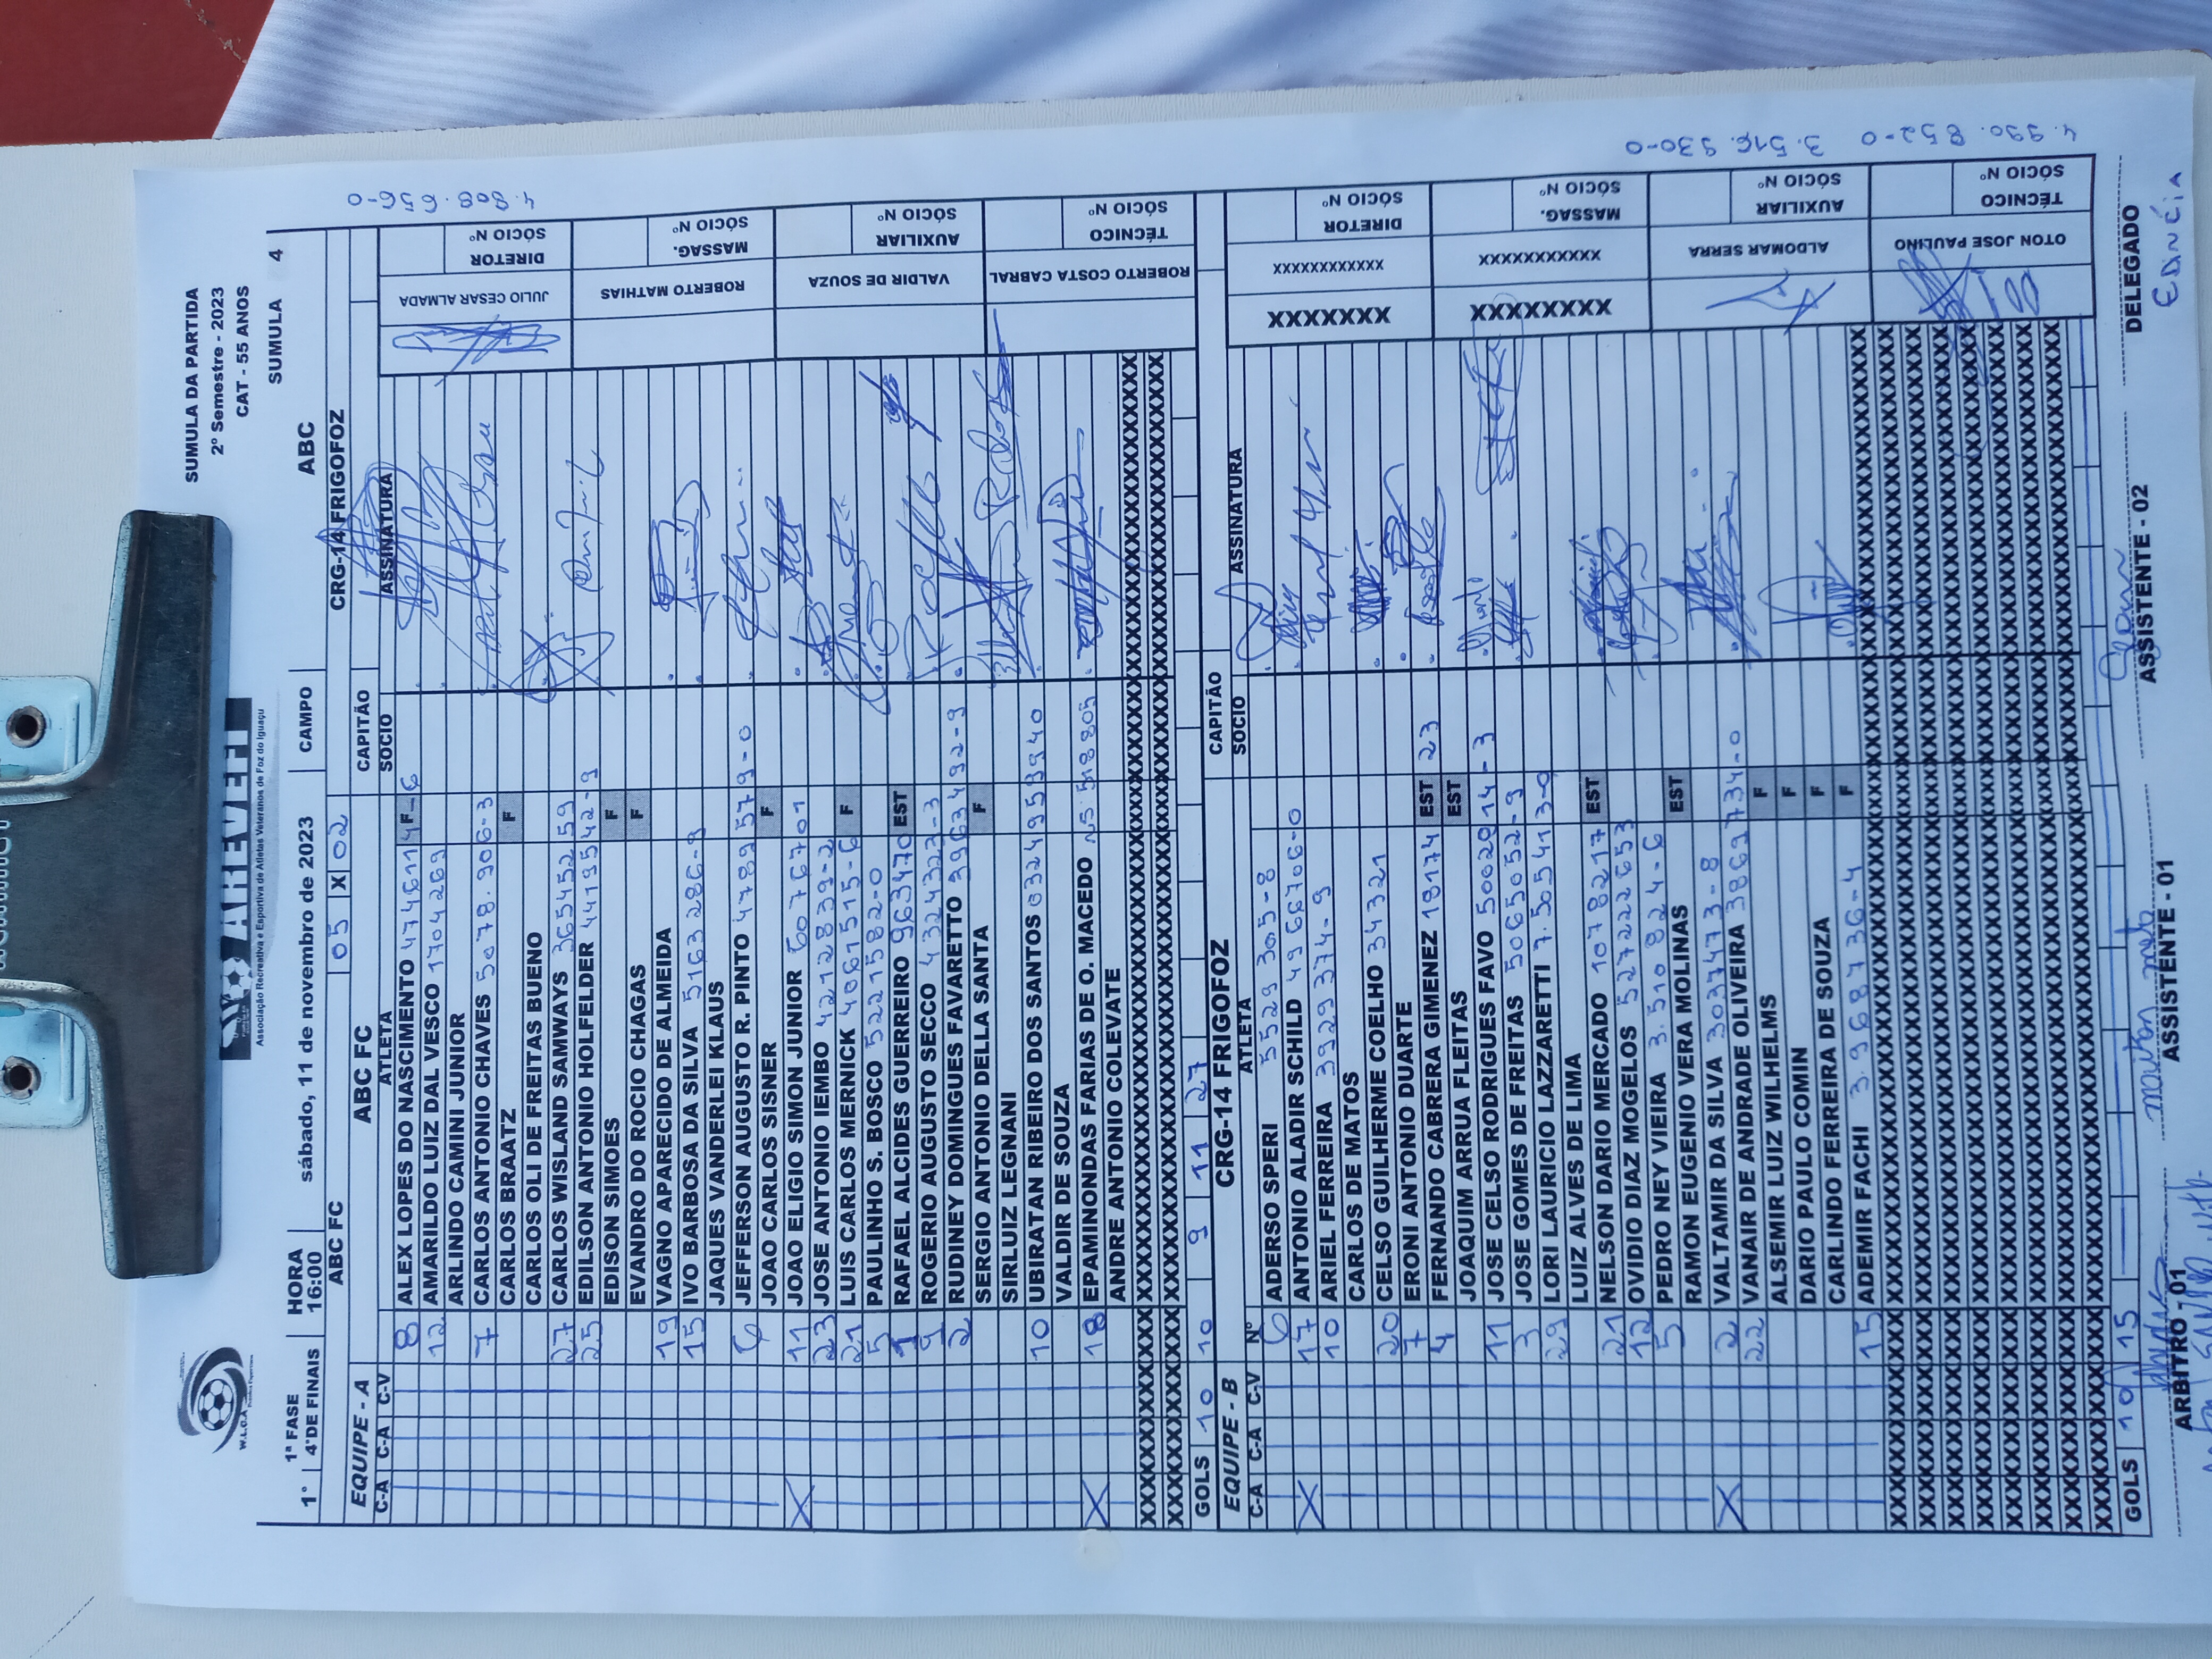 SUMULA DA PARTIDA
2º Semestre - 2023
CAT - 55 ANOS
W.L.O.A
AREVEFI
Associação Recreativa e Esportiva de Atletas Veteranos de Foz do Iguaçu
1ª FASE HORA sábado, 11 de novembro de 2023 CAMPO ABC SUMULA 4
1° 4ªDE FINAIS 16:00
ABC FC 05 X 02 CRG-14 FRIGOFOZ
EQUIPE - A ABC FC CAPITÃO
C-A C-A C-V ATLETA SOCIO ASSINATURA
8 ALEX LOPES DO NASCIMENTO 4774611 4 F-6
12 AMARILDO LUIZ DAL VESCO 1704269
ARLINDO CAMINI JUNIOR
7 CARLOS ANTONIO CHAVES 5078.906-3
CARLOS BRAATZ F
CARLOS OLI DE FREITAS BUENO
27 CARLOS WISLAND SAMWAYS 36545259
25 EDILSON ANTONIO HOLFELDER 4419542-9
EDISON SIMOES F
EVANDRO DO ROCIO CHAGAS F
19 VAGNO APARECIDO DE ALMEIDA
15 IVO BARBOSA DA SILVA 5163286-9
JAQUES VANDERLEI KLAUS
6 JEFFERSON AUGUSTO R. PINTO 4789579-0
JOAO CARLOS SISNER F
X 11 JOAO ELIGIO SIMON JUNIOR 60076701
23 JOSE ANTONIO IEMBO 4212839-2
21 LUIS CARLOS MERNICK 4061515-6 F
5 PAULINHO S. BOSCO 5221582-0
1 RAFAEL ALCIDES GUERREIRO 963470 EST
9 ROGERIO AUGUSTO SECCO 4324323-3
2 RUDINEY DOMINGUES FAVARETTO 3963492-9
SERGIO ANTONIO DELLA SANTA F
SIRLUIZ LEGNANI
10 UBIRATAN RIBEIRO DOS SANTOS 03249539940
VALDIR DE SOUZA
X 18 EPAMINONDAS FARIAS DE O. MACEDO NS 518805
ANDRE ANTONIO COLEVATE
GOLS 10 10 9 11 27
JULIO CESAR ALMADA DIRETOR SÓCIO Nº
4.808.656-0
ROBERTO MATHIAS MASSAG. SÓCIO Nº
VALDIR DE SOUZA AUXILIAR SÓCIO Nº
ROBERTO COSTA CABRAL TÉCNICO SÓCIO Nº
EQUIPE - B CRG-14 FRIGOFOZ CAPITÃO
C-A C-A C-V Nº ATLETA SOCIO ASSINATURA
6 ADERSO SPERI 5529305-8
X 17 ANTONIO ALADIR SCHILD 49667060-0
10 ARIEL FERREIRA 3929374-9
CARLOS DE MATOS
20 CELSO GUILHERME COELHO 34321
7 ERONI ANTONIO DUARTE
4 FERNANDO CABRERA GIMENEZ 18174 EST 23
JOAQUIM ARRUA FLEITAS EST
11 JOSE CELSO RODRIGUES FAVO 5002014-3
3 JOSE GOMES DE FREITAS 5065052-9
29 LORI LAURICIO LAZZARETTI 7.505413-0
LUIZ ALVES DE LIMA
21 NELSON DARIO MERCADO 1078217 EST
12 OVIDIO DIAZ MOGELOS 52722265
5 PEDRO NEY VIEIRA 3.510824-6
RAMON EUGENIO VERA MOLINAS EST
X 2 VALTAMIR DA SILVA 3037473-8
22 VANAIR DE ANDRADE OLIVEIRA 3869734-0
ALSEMIR LUIZ WILHELMS F
DARIO PAULO COMIN F
CARLINDO FERREIRA DE SOUZA F
15 ADEMIR FACHI 3.968736-4 F
GOLS 10 15
XXXXXXX XXXXXXXXXXXX DIRETOR SÓCIO Nº
XXXXXXXX XXXXXXXXXXX MASSAG. SÓCIO Nº
ALDOMAR SERRA AUXILIAR SÓCIO Nº
3.516.930-0
OTON JOSE PAULINO TÉCNICO SÓCIO Nº
4.990.852-0
ARBITRO - 01 ASSISTENTE - 01 ASSISTENTE - 02 DELEGADO